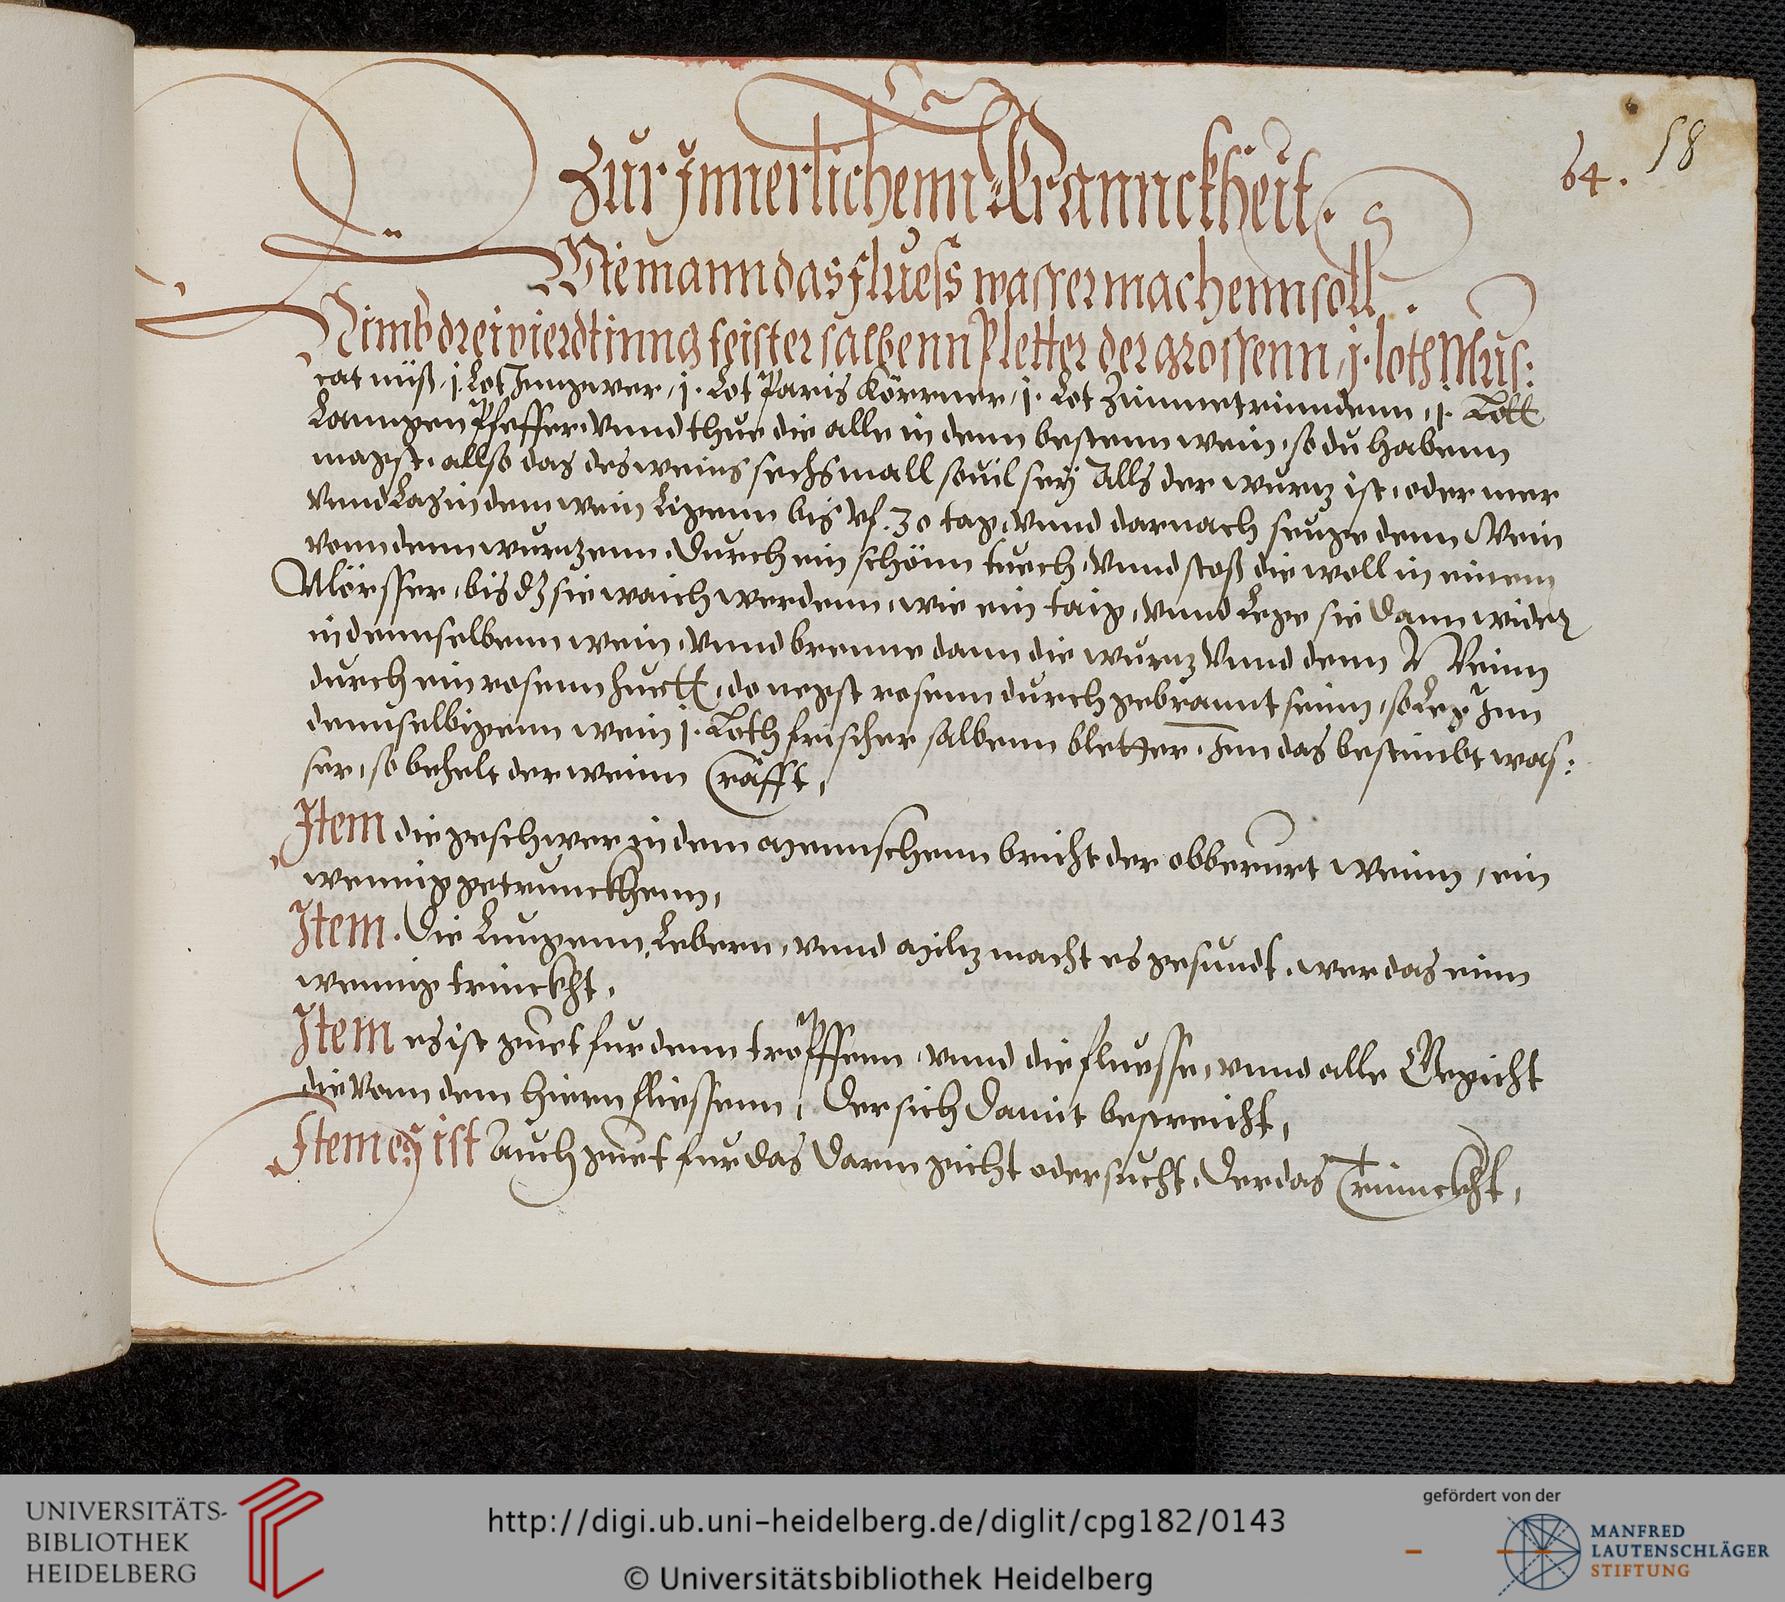 64. 58
Zur Innerlichenn Krannckheit.
Wie mann das fluess wasser machenn soll.
Nimb drei vierdtinng feister salbenn Pletter der grossenn, j. loth Mus:
cat nüß, j. Lot Jungwer, j. Lot Paris Körrner, j. Lot Zimmetrinndenn, j. Lott
Lanngen Pfeffer, Vnnd thue die alle in denn bestenn wein, so du habenn
magst, allso das des weins sechs mall souil seÿ Alls der wurtz ist, oder mer
Vnnd Las in dem wein Ligenn bis vf. 30 tag, Vnnd darnach seuge denn Wein
vonn denn wurtzenn, Durch ein schönn tuech, Vnnd stoß die woll in einem
Mörsser, bis dz sie waich werdenn, wie ein taig, Vnnd Lege sie dann wider
in dennselbenn wein, Vnnd brenne dann die wurtz Vnnd denn Weinn
durch ein rosenn huett, do negst rosenn durch gebrannt seinn, so Leg Inn
dennselbigenn wein j. Loth frischer salbenn bletter. Inn das bestimbt was:
ser, so behelt der weinn Crafft,
Item die geschwer in dem mennschenn bricht der obberurt Weinn, ein
wennig getrunckhenn,
Item. Die Lungenn, Lebern, vnnd miltz macht es gesundt, wer das einn
wennig trinckht,
Item es ist guet fur denn tropffenn, vnnd die fluesse, vnnd alle Gegicht
die Vonn dem hiern fliessenn, Der sich Damit bestreicht,
Item eß ist Auch guet fur das Darm gicht oder sucht, Der das Trinnckht,
UNIVERSITÄTS-
BIBLIOTHEK
HEIDELBERG
http://digi.ub.uni-heidelberg.de/diglit/cpg182/0143
© Universitätsbibliothek Heidelberg
gefördert von der
MANFRED
LAUTENSCHLÄGER
STIFTUNG